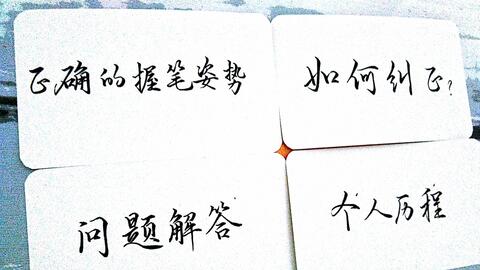 正确的握笔姿势
如何纠正？
问题解答
个人历程